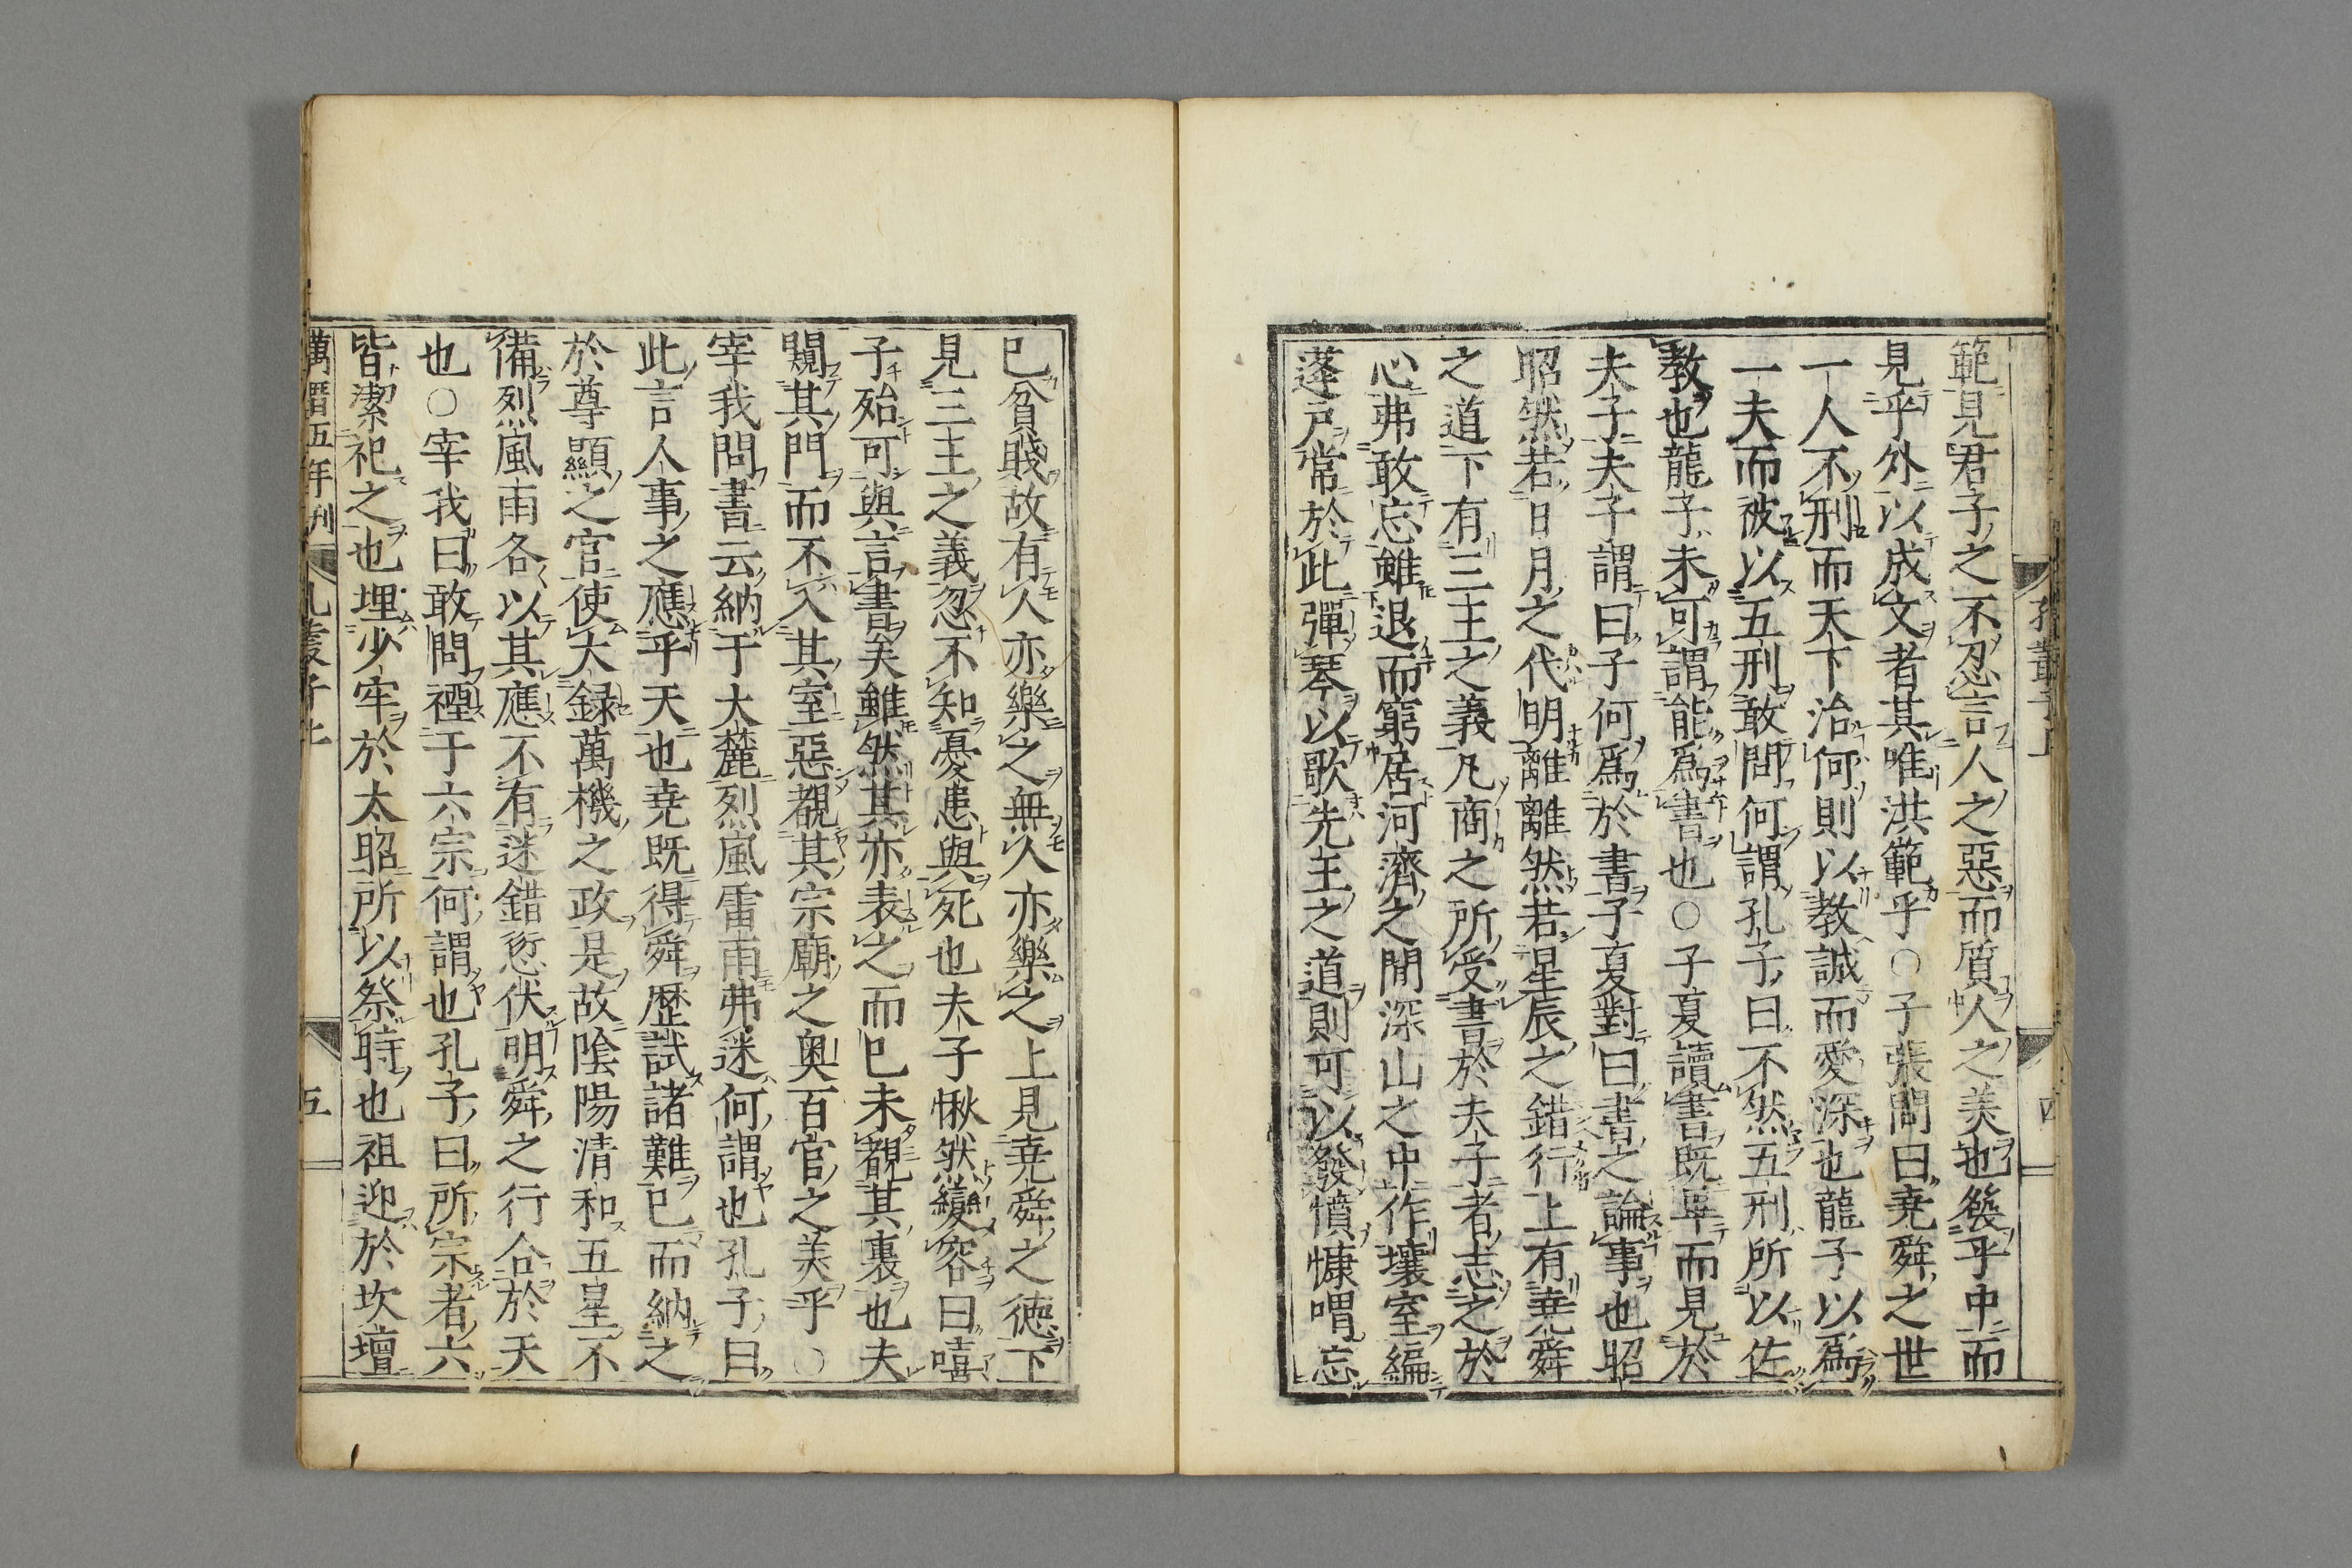 範見君子之不忍言人之惡而質人之美也發乎中而
見乎外以成文者其唯洪範乎○子張問曰堯舜之世
一人不刑而天下治何則以教誠而愛深也龍子以爲
一夫而被以五刑敢問何謂孔子曰不然五刑所以佐
教也龍子未可謂能爲書也○子夏讀書既畢而見於
夫子夫子謂曰子何爲於書子夏對曰書之論事也昭
昭然若日月之代明離離然若星辰之錯行上有堯舜
之道下有三王之義凡商之所受書於夫子者志之於
心弗敢忘雖退而窮居河濟之間深山之中作壤室編
蓬戸常於此彈琴以歌先王之道則可以發憤慷喟忘
己貧賤故有人亦樂之無人亦樂之上見堯舜之徳下
見三王之義忽不知憂患與死也夫子愀然變容曰嘻
子殆可與言書矣雖然其亦表之而已未覩其裏也夫
闚其門而不入其室惡覩其宗廟之奥百官之美乎○
宰我問書云納于大麓烈風雷雨弗迷何謂也孔子曰
此言人事之應乎天也堯既得舜歴試諸難已而納之
於尊顯之官使大録萬機之政是故陰陽清和五星不
備烈風雨各以其應不有迷錯愆伏明舜之行合於天
也○宰我曰敢問禋于六宗何謂也孔子曰所宗者六
皆潔祀之也埋少牢於太昭所以祭時也祖迎於坎壇
萬暦五年刊 孔叢子上 五